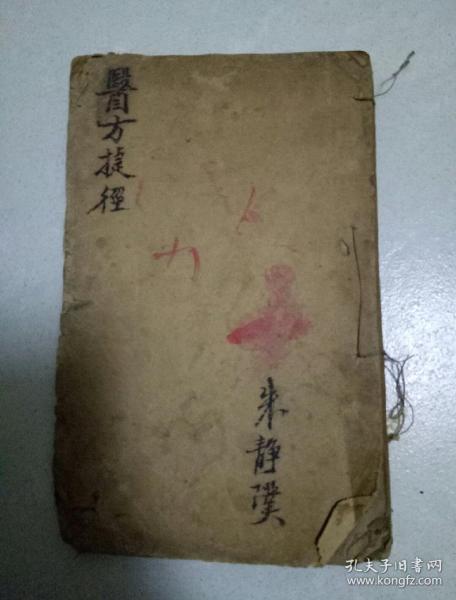 醫方捷徑
朱靜
孔夫子旧书网
www.kongfz.com